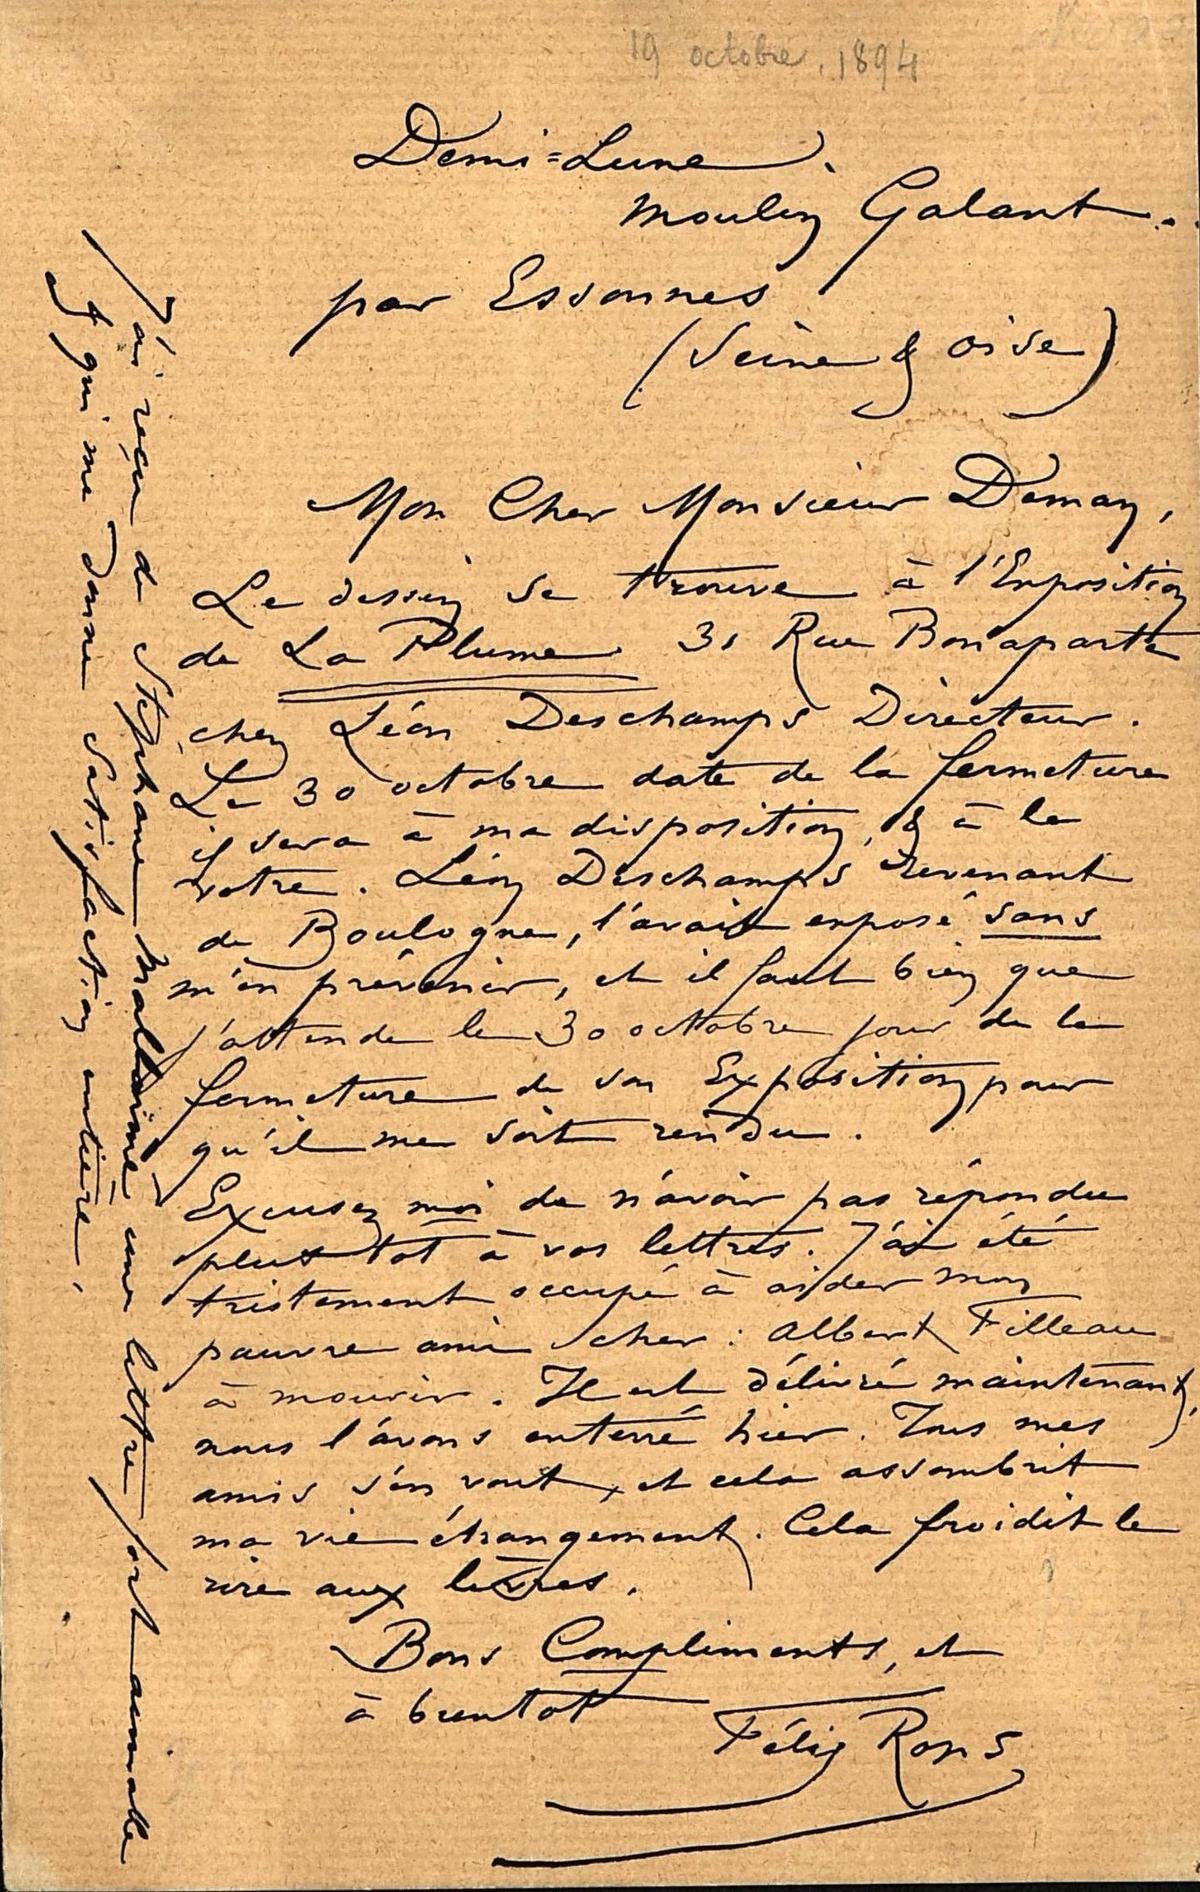 19 octobre. 1894
Demi-Lune.
Moulin Galant.
par Essonnes
(Seine & Oise)
Mon Cher Monsieur Deman,
Le dessin se trouve à l'Exposition
de La Plume 31 Rue Bonaparte
chez Léon Deschamps Directeur.
Le 30 octobre date de la fermeture
il sera à ma disposition, & à la
votre. Léon Deschamps revenant
de Boulogne, l'avait exposé sans
m'en prévenir, et il faut bien que
j'attende le 30 octobre jour de la
fermeture de son Exposition pour
qu'il me soit rendu.
Excusez moi de n'avoir pas répondu
plus tôt à vos lettres. J'ai été
tristement occupé à aider mon
pauvre ami cher : Albert Filleau
à mourir. Il est délivré maintenant,
nous l'avons enterré hier. Tous mes
amis s'en vont, et cela assombrit
ma vie étrangement. Cela froidit le
rire aux lèvres.
Bons Compliments, et
à bientot
Félix Rops
J'ai reçu de Stéphane Mallarmé une lettre fort aimable
& qui me donne satisfaction entière.